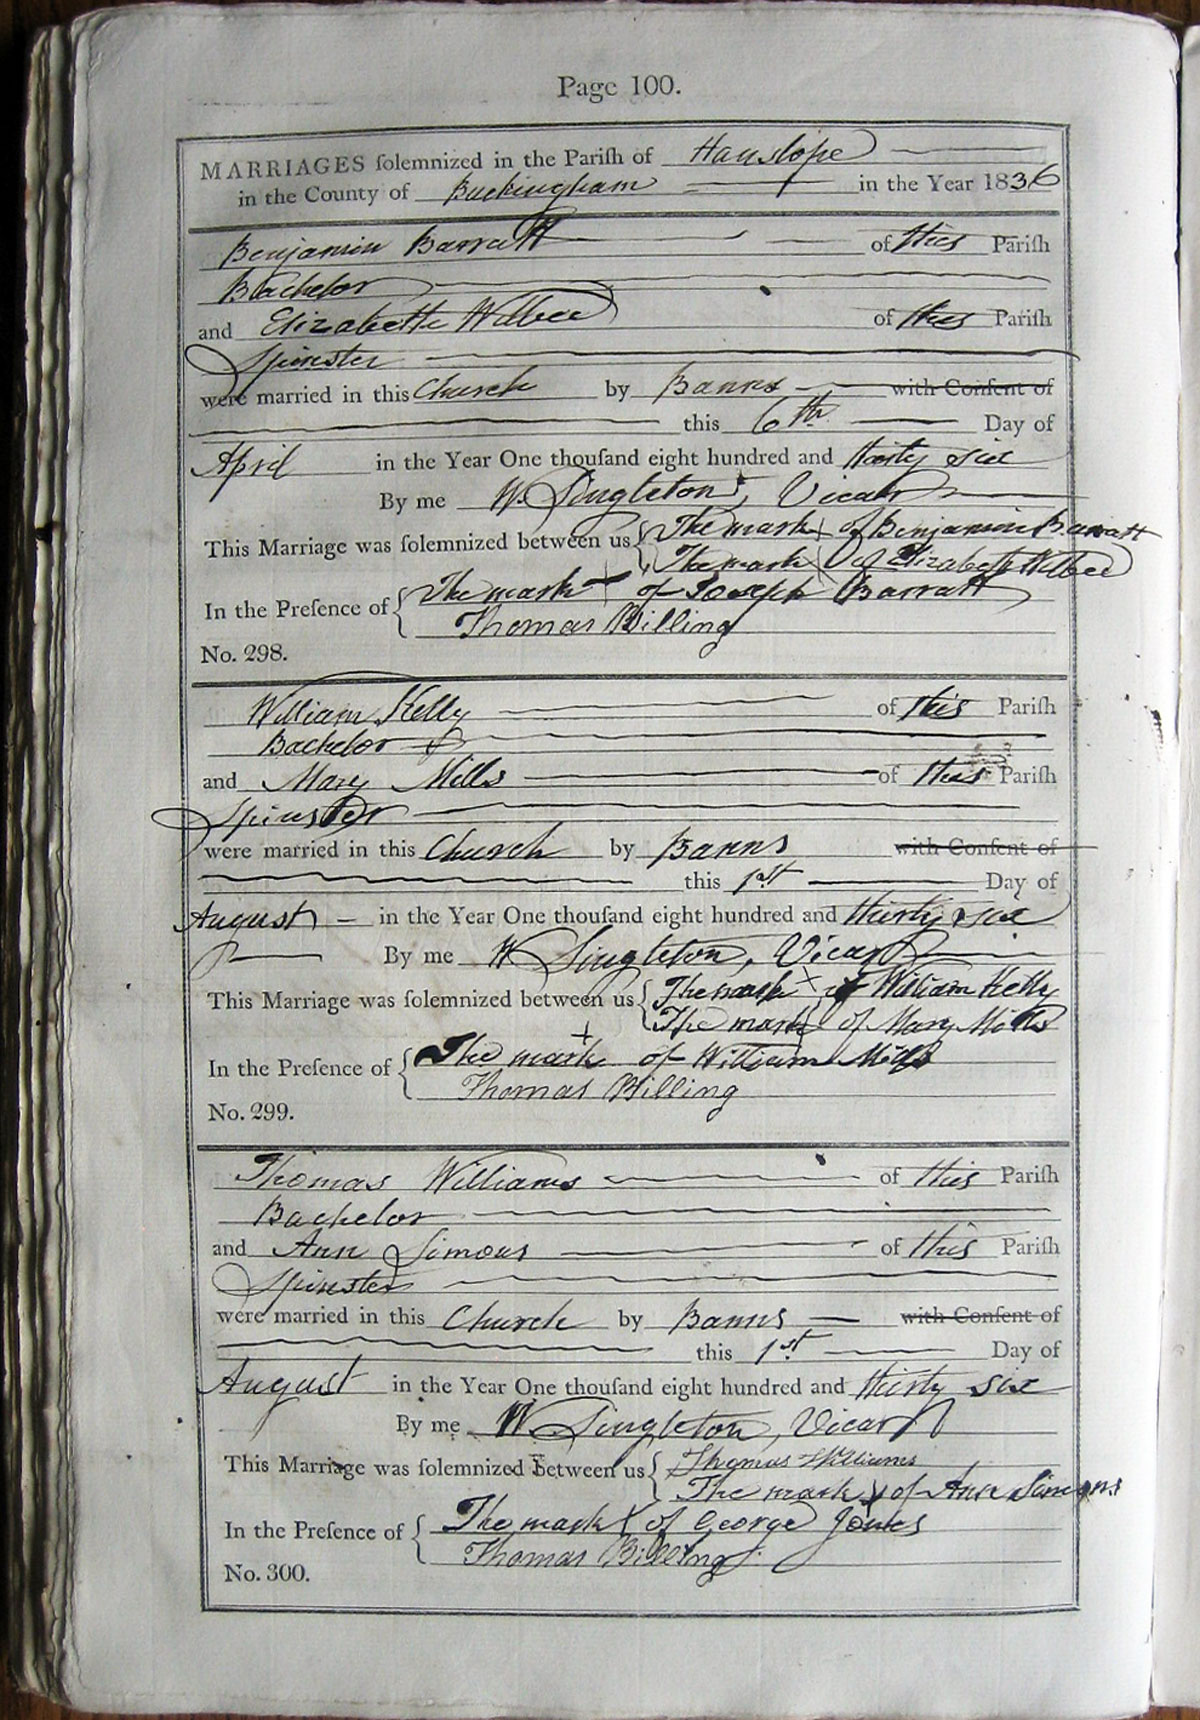 Page 100.
MARRIAGES ſolemnized in the Pariſh of Hanslope
in the County of Buckingham in the Year 1836
Benjamin Barratt of this Pariſh
Bachelor
and Elizabeth Wilbee of this Pariſh
Spinster
were married in this Church by Banns with Conſent of
this 6th Day of
April in the Year One thouſand eight hundred and thirty six
By me W. Singleton, Vicar
This Marriage was ſolemnized between us { The mark x of Benjamin Barratt
The mark x of Elizabeth Wilbee
In the Preſence of { The mark + of Joseph Barratt
Thomas Billing
No. 298.
William Kelly of this Pariſh
Bachelor
and Mary Mills of this Pariſh
Spinster
were married in this Church by Banns with Conſent of
this 1st Day of
August in the Year One thouſand eight hundred and thirty six
By me W Singleton, Vicar
This Marriage was ſolemnized between us { The mark x of William Kelly
The mark x of Mary Mills
In the Preſence of { The mark + of William Mills
Thomas Billing
No. 299.
Thomas Williams of this Pariſh
Bachelor
and Ann Simons of this Pariſh
Spinster
were married in this Church by Banns with Conſent of
this 1st Day of
August in the Year One thouſand eight hundred and thirty six
By me W. Singleton, Vicar
This Marriage was ſolemnized between us { Thomas Williams
The mark x of Ann Simons
In the Preſence of { The mark x of George Jones
Thomas Billing.
No. 300.